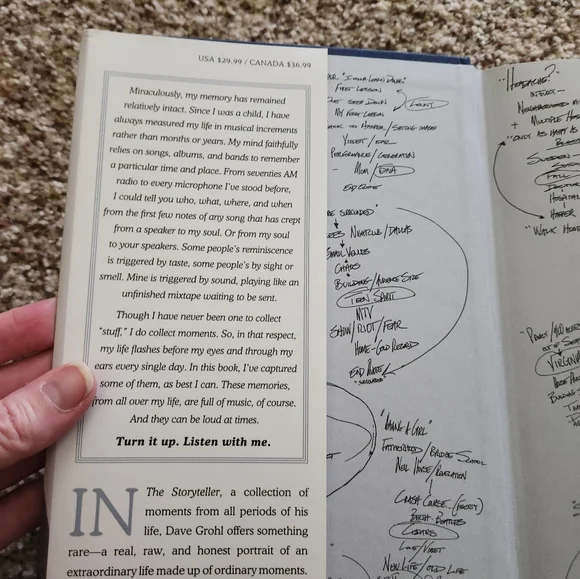 USA $29.99 / CANADA $36.99
Miraculously, my memory has remained
relatively intact. Since I was a child, I have
always measured my life in musical increments
rather than months or years. My mind faithfully
relies on songs, albums, and bands to remember
a particular time and place. From seventies AM
radio to every microphone I've stood before,
I could tell you who, what, where, and when
from the first few notes of any song that has crept
from a speaker to my soul. Or from my soul
to your speakers. Some people's reminiscence
is triggered by taste, some people's by sight or
smell. Mine is triggered by sound, playing like an
unfinished mixtape waiting to be sent.
Though I have never been one to collect
"stuff," I do collect moments. So, in that respect,
my life flashes before my eyes and through my
ears every single day. In this book, I've captured
some of them, as best I can. These memories,
from all over my life, are full of music, of course.
And they can be loud at times.
Turn it up. Listen with me.
IN The Storyteller, a collection of
moments from all periods of his
life, Dave Grohl offers something
rare—a real, raw, and honest portrait of an
extraordinary life made up of ordinary moments.
FIRST LESSON
MY FIRST LESSON
VIOLET / EAR
PERFORMANCE / GENERATION
- MOM / DANA
END QUOTE
NIGHTCLUB / DALLAS
SMALL VENUES
CHAIRS
BUILDING / AUDIENCE SIZE
TEEN SPIRIT
MTV
SHOW / RIOT / FEAR
HOME - GOLD RECORD
END QUOTE
"SURROUNDED"
FATHERHOOD / BRIDGE SCHOOL
NEIL HOUSE / REVELATION
CRASH COURSE -
BIRTH - BEATLES
LOVE / VIOLET
NEW LIFE / OLD LIFE
"HEADACHE?"
INJURY -
+ MULTIPLE
"ONLY
SWEDEN -
FALL
"WALK
VIRGINIA